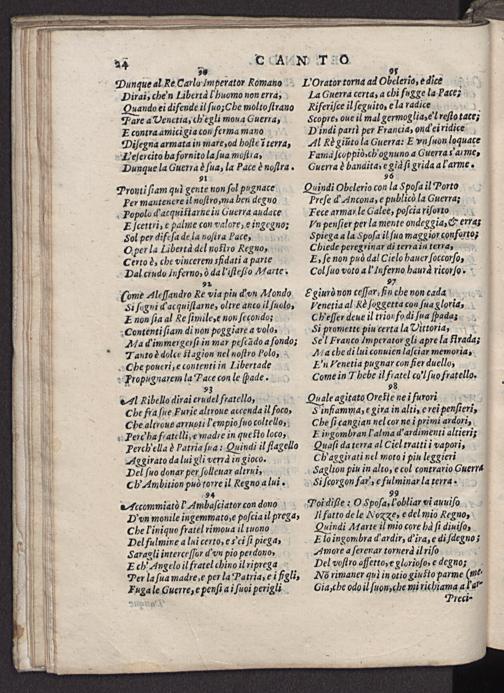 24
CANTO
90
Dunque al Re Carlo Imperator Romano
Dirai, che'n Libertà l'huomo non erra,
Quando ei difende il suo; Che molto strano
Pare a Venetia, ch'egli moua Guerra,
E contra amicigia con ferma mano
Disegna armata in mare, od hoste i'terra,
L'esercito ha fornito la sua mostra,
Dunque la Guerra è sua, la Pace è nostra.
91
Pronti siam quì gente non sol pugnace
Per mantenere il nostro, ma ben degno
Popolo d'acquistarne in Guerra audace
E scettri, e palme con valore, e ingegno;
Sol per difesa de la nostra Pace,
O per la Libertà del nostro Regno,
Certo è, che vincerem sfidati a parte
Dal crudo inferno, ò dal'istesso Marte.
92
Come Alessandro Re via più d'vn Mondo
Si sogni d'acquistarne, oltre anco il suolo,
E non sia al Re simile, e non secondo;
Contenti siam di non poggiare a volo,
Ma d'immergersi in mar pescãdo a fondo;
Tanto è dolce stagion nel nostro Polo,
Che poueri, e contenti in Libertade
Propugnarem la Pace con le spade.
93
Al Ribello dirai crudel fratello,
Che fra sue Furie altroue accenda il foco,
Che altroue arruoti l'empio suo coltello,
Perc'ha fratelli, e madre in questo loco,
Perch'ella è Patria sua: Quindi il flagello
Aggirato da lui gli verrà in gioco.
Del suo donar per solleuar altrui,
Ch'Ambition può torre il Regno a lui.
94
Accommiatò l'Ambasciator con dono
D'vn monile ingemmato, e poscia il prega,
Che l'iniquo fratel rimoua il tuono
Del fulmine a lui certo, e s'ei si piega,
Saragli intercessor d'vn pio perdono,
E ch'Angelo il fratel chino il riprega
Per la sua madre, e per la Patria, e i figli,
Fuga le Guerre, e pensi a i suoi perigli
95
L'Orator torna ad Obelerio, e dice
La Guerra certa, a chi fugge la Pace;
Riferisce il seguito, e la radice
Scopre, oue il mal germoglia, e'l resto tace;
D'indi partì per Francia, ond'ei ridice
Al Rè giùto la Guerra: E vn suon loquace
Fama scoppiò, ch'ognuno a Guerra s'arme,
Guerra è bandita, e già si grida a l'arme.
96
Quindi Obelerio con la Sposa il Porto
Prese d'Ancona, e publicò la Guerra;
Fece armar le Galee, poscia risorto
Vn pensier per la mente ondeggia, & erra;
Spiega a la Sposa il suo maggior conforto;
Chiede peregrinar di terra in terra,
E, se non può dal Cielo hauer soccorso,
Col suo voto a l'Inferno haurà ricorso.
97
E giurò non cessar, fin che non cada
Venetia al Rè soggetta con sua gloria,
Ch'esser deue il trionfo di sua spada;
Si promette più certa la Vittoria,
Se'l Franco Imperator gli apre la strada;
Ma che di lui conuien lasciar memoria,
E'n Venetia pugnar con fier duello,
Come in Thebe il fratel co'l suo fratello.
98
Quale agitato Oreste ne i furori
S'infiamma, e gira in alti, e rei pensieri,
Che si cangian nel cor ne i primi ardori,
E ingombran l'alma d'ardimenti altieri;
Quasi da terra al Ciel tratti i vapori,
Ch'aggirati nel moto i più leggieri
Saglion più in alto, e col contrario Guerra
Si scorgon far', e fulminar la terra.
99
Poi disse: O Sposa, l'obliar vi auuiso
Il fatto de le Nozze, e del mio Regno,
Quindi Marte il mio core hà sì diuiso,
E lo ingombra d'ardir, d'ira, e di sdegno;
Amore a serenar tornerà il riso
Del vostro affetto, e glorioso, e degno;
Nõ rimaner quì in otio giusto parme (me.
Già, che odo il suon, che mi richiama a l'ar-
Preci-